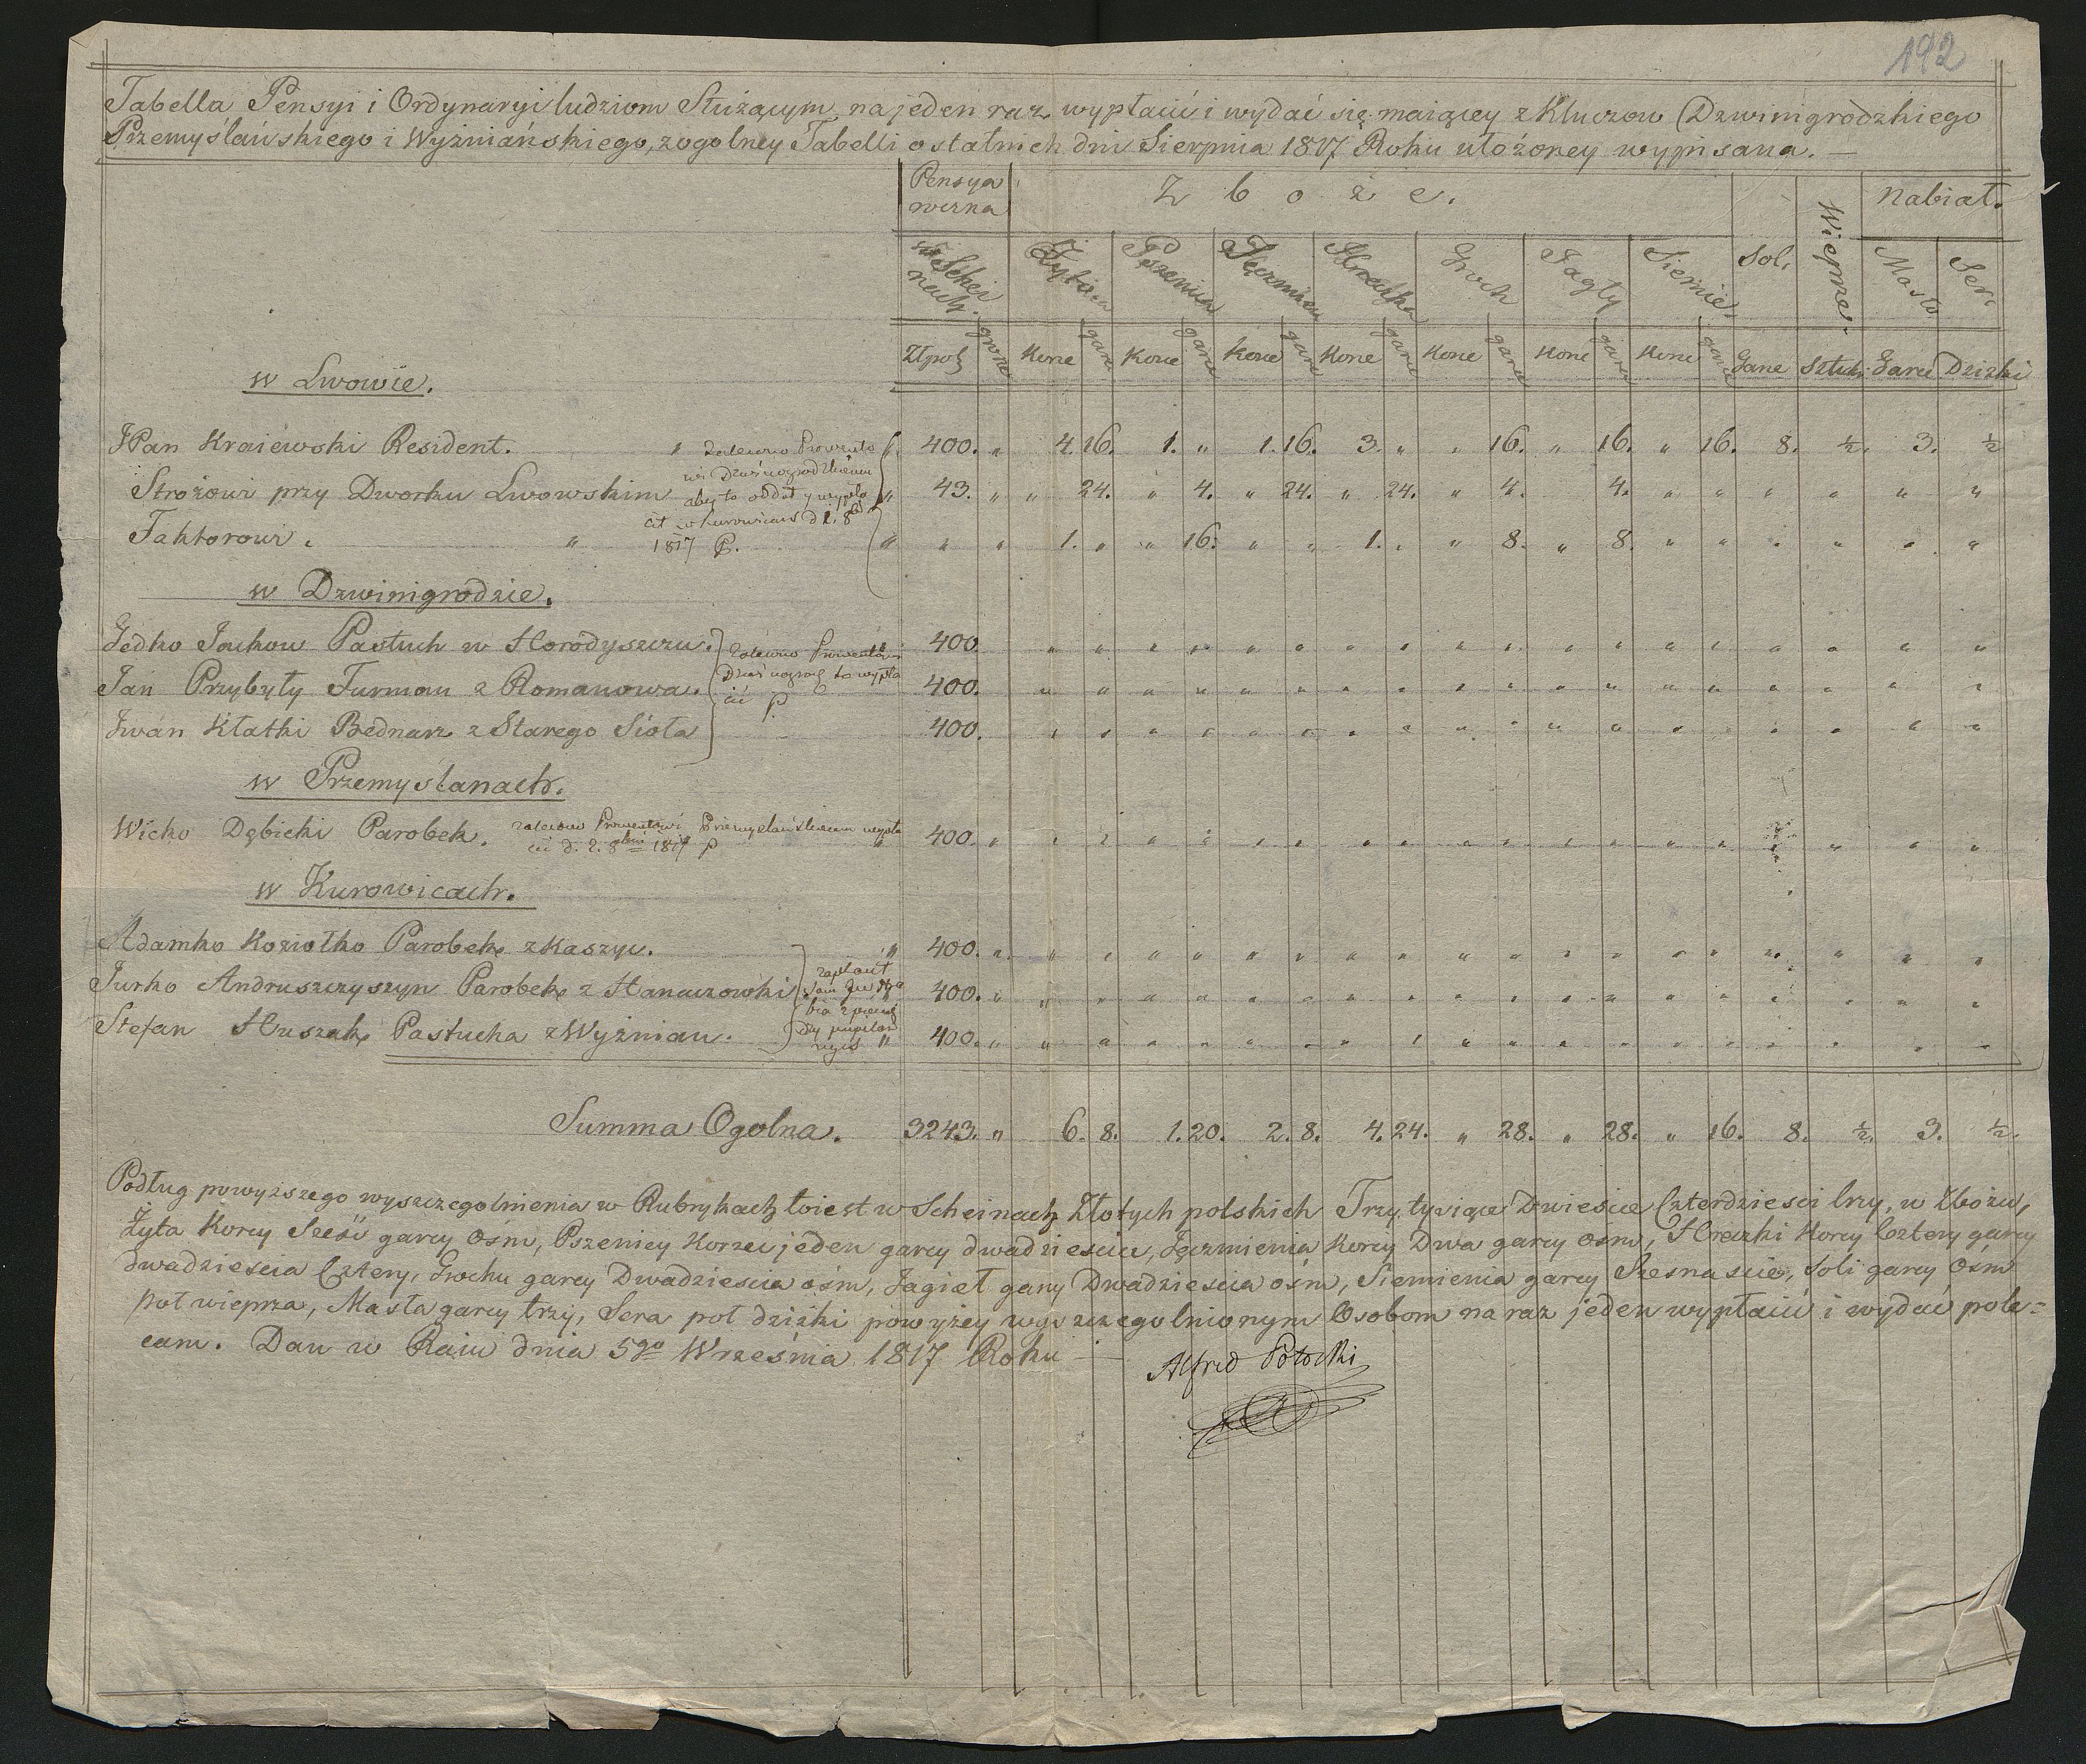 192
Tabella Pensyi i Ordynaryi ludziom Służącym na jeden raz wypłacić i wydać się maiącey z Kluczow Dzwinigrodzkiego
Przemyślańskiego i Wyżniańskiego, z ogolney Tabelli ostatnich dni Sierpnia 1817 Roku ułożoney wypisana. —
Pensya roczna Zboże. Soli Wieprze Nabiał.
w Schei nach. Żyto Pszenica Jęczmien Hreczka Groch Jagły Siemie Masło Ser
Złpol grosze Korce garce Korce garce Korce garce Korce garce Korce garce Korce garce Korce garce Garce Sztuki Garce Dziżki
w Lwowie.
JPan Kraiewski Resident. " 400. " 4. 16. 1. " 1. 16. 3. " " 16. " 16. " 16. 8. ½. 3. ½
zalecono Prowento
wi Dzwinogrodzkiemu
Strożowi przy Dworku Lwowskim " 43. " " 24. " 4. " 24. " 24. " 4. 4. " " " " " "
aby to oddał y wypła
cił w Kurowicach d 1. 8b
Faktorowi. " " " " 1. " " 16. " " 1. " " 8. " 8. " " " " " "
1817 P.
w Dzwinigrodzie.
Fedko Jackow Pastuch w Horodyszczu. 400.
zalecono Prowentowi
Jan Przybyły Furman z Romanowa. 400.
Dzwinogrodz to wypła
cić P
Iwan Kłatki Bednarz z Starego Sioła 400.
w Przemyslanach.
Wicko Dębicki Parobek. 400. "
zalecono Prowentowi Przemyslańskiemu wypła
cić d. 2. 8bris 1817 P
w Kurowicach.
Adamko Koziołko Parobek z Kaszyc. " 400. "
Jurko Andruszczyszyn Parobek z Hanaczowki 400. "
zapłacił
Stefan Huszak Pastucha z Wyżnian. " 400. "
Summa Ogolna. 3243. " 6. 8. 1. 20. 2. 8. 4. 24. " 28. " 28. " 16. 8. ½. 3. ½.
Podług powyższego wyszczegolnienia w Rubrykach toiest w Scheinach Złotych polskich Trzy tysiące Dwiescie Czterdziesci trzy, w Zbożu,
Żyta Korcy Sześć garcy Ośm, Pszenicy Korzec jeden garcy dwadziescia, Jęczmienia Korcy Dwa garcy ośm, Hreczki Korcy Cztery garcy
dwadziescia Cztery, Grochu garcy Dwadziescia ośm, Jagieł garcy Dwadziescia ośm, Siemienia garcy Szesnascie, Soli garcy Ośm
poł wieprza, Masła garcy trzy, Sera poł dziżki powyżey wyszczegolnionym Osobom na raz jeden wypłacić i wydać pole=
cam. Dan w Raiu dnia 5go Września 1817 Roku —
Alfred Potocki